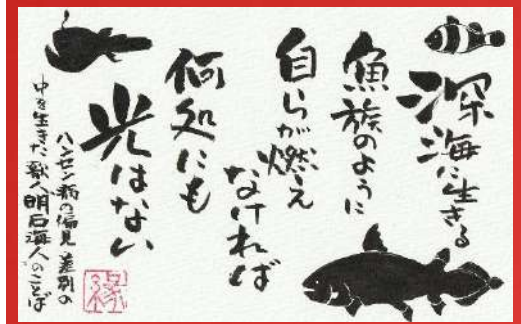 深海に生きる
魚族のように
自らが燃え
なければ
何処にも
光はない
ハンセン病の偏見 差別の
中を生きた歌人明石海人のことば
縁